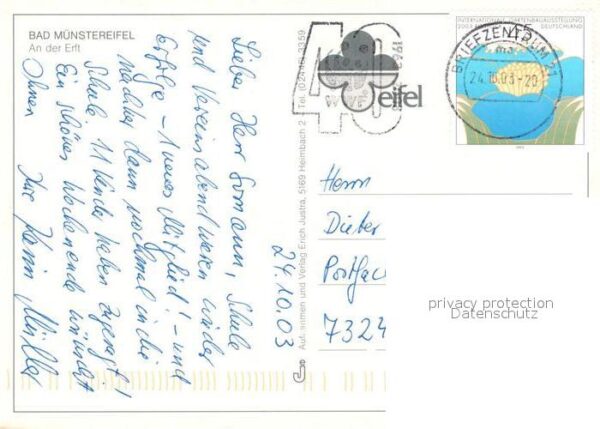 BAD MÜNSTEREIFEL
An der Erft
Lieber Herr Formann, Schule
und Vereinsabend waren wieder
Erfolge - 1 neues Mitglied! - und
nächstes dann nochmal in die
Schule. 11 Kinder haben zugesagt!
Ein schönes Wochenende wünscht
Ihnen Ihre Karin Müller
24.10.03
Aufnahmen und Verlag Erich Justra, 5169 Heimbach 2 Tel. (02446) 3359
40
eifel
BRIEFZENTRUM
24.10.03-20
INTERNATIONALE GARTENBAUAUSSTELLUNG
DEUTSCHLAND
Herrn
Dieter
Postfac
7324
privacy protection
Datenschutz